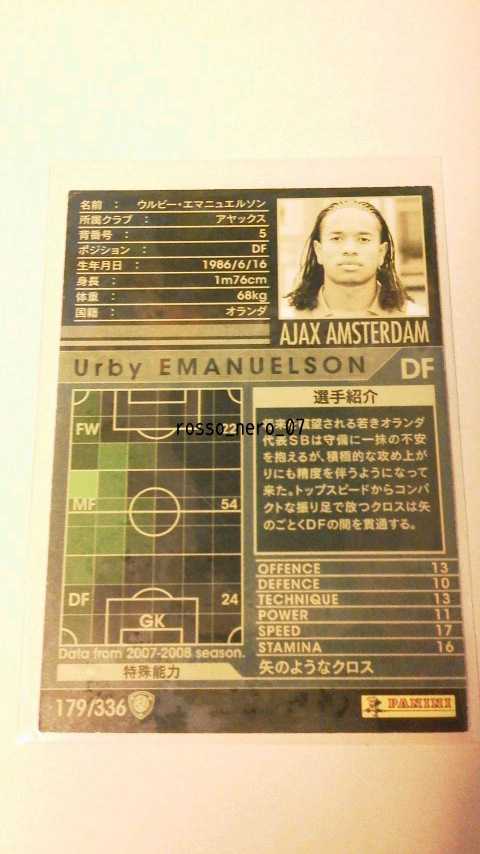 名前 : ウルビー・エマニュエルソン
所属クラブ : アヤックス
背番号 : 5
ポジション : DF
生年月日 : 1986/6/16
身長 : 1m76cm
体重 : 68kg
国籍 : オランダ
AJAX AMSTERDAM
Urby EMANUELSON DF
選手紹介
される若きオランダ
代表SBは守備に一抹の不安
を抱えるが、積極的な攻め上が
りにも精度を伴うようになって
来た。トップスピードからコンパ
クトな振り足で放つクロスは矢
のごとくDFの間を貫通する。
FW 22
rosso_nero_07
MF 54
DF 24
GK
Data from 2007-2008 season.
OFFENCE 13
DEFENCE 10
TECHNIQUE 13
POWER 11
SPEED 17
STAMINA 16
特殊能力 矢のようなクロス
179/336
PANINI